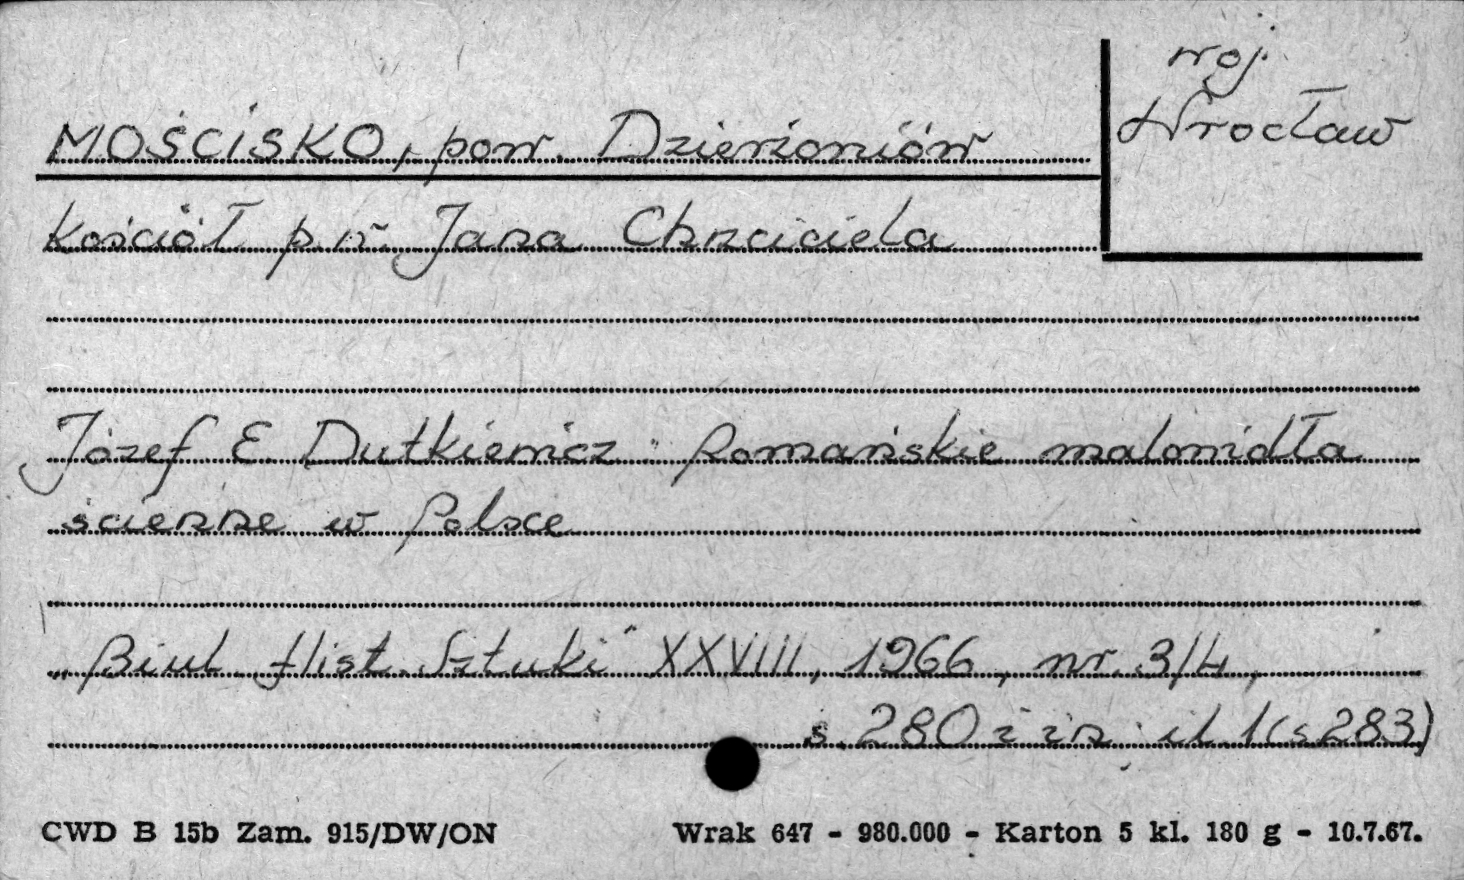 woj.
Wrocław
MOŚCISKO, pow. Dzierżoniów
Kościół p.w. Jana Chrzciciela
Józef E. Dutkiewicz: Romańskie malowidła
ścienne w Polsce
„Biul. Hist. Sztuki" XXVIII, 1966, nr. 3/4,
s. 280 i in. il. 1 (s. 283)
CWD B 15b Zam. 915/DW/ON
Wrak 647 - 980.000 - Karton 5 kl. 180 g - 10.7.67.